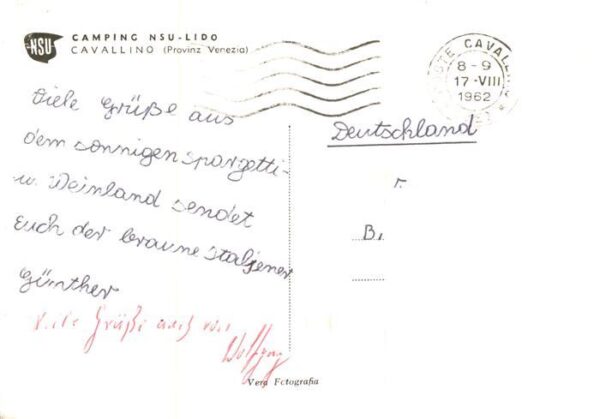 NSU
CAMPING NSU-LIDO
CAVALLINO (Provinz Venezia)
CAVALL
8-9
17-VIII
1962
Viele Grüße aus
dem sonnigen Spargetti-
u. Weinland sendet
Euch der braune Italjener
Günther
Viele Grüße auch von
Wolfgang
Deutschland
r.
B.
Vera Fotografia